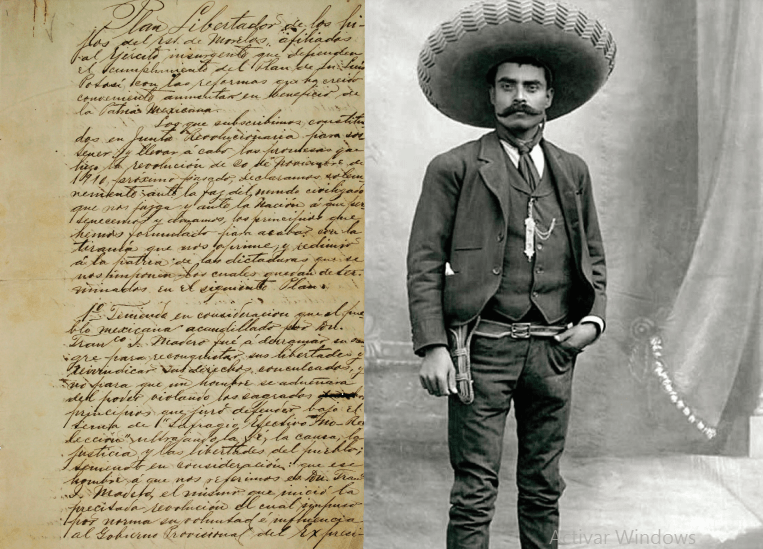 Plan Libertador de los hi-
jos del Est. de Morelos, afiliados
al Ejército insurgente que defienden
el cumplimiento del Plan de San Luis
Potosí con las reformas que ha creido
conveniente aumentar en beneficio de
la Patria Mexicana.
Los que subscribimos, constitui-
dos en Junta Revolucionaria para sos-
tener y llevar á cabo las promesas que
hizo la revolución de 20 de Noviembre de
1910, próximo pasado, declaramos solem-
nemente ante la faz del mundo civilizado
que nos juzga y ante la Nación á que per-
tenecemos y amamos, los principios que
hemos formulado para acabar con la
tiranía que nos oprime y redimir
á la patria de las dictaduras que se
nos imponen los cuales quedan deter-
minados en el siguiente Plan:
1º. Teniendo en consideración que el pue-
blo mexicano acaudillado por Dn.
Franco. I. Madero fué á derramar su san-
gre para reconquistar sus libertades y
reivindicar sus derechos conculcados, y
no para que un hombre se adueñara
del poder violando los sagrados
principios que juró defender bajo el
lema de "Sufragio Efectivo" "No Re-
elección" ultrajando la fé, la causa, la
justicia y las libertades del pueblo;
teniendo en consideración: que ese
hombre á que nos referimos es Dn. Fran
I. Madero, el mismo que inició la
precitada revolución el cual impuso
por norma su voluntad é influencia
al Gobierno Provisional del Ex presi-
Activar Windows